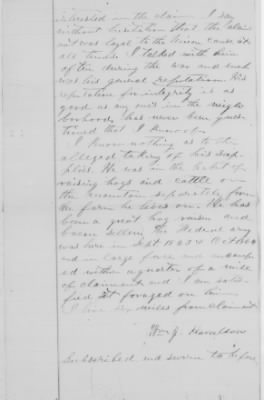 interested in the claim. I say
without hesitation that the claim
ant was loyal to the Union cause at
all times. I talked with him
often during the war and such
was his general reputation. His
reputation for integrity is as
good as any one's in the neigh
borhood, has never been ques
tioned that I know of.
I know nothing as to the
alleged taking of his sup
plies. He was in the habit of
raising hogs and cattle on
the mountain separately from
the farm he lives on. He has
been a great hog raiser and
bacon seller, the Federal army
was here in Sept 1863 & Oct 1864
and in large force and encamp
ed within a quarter of a mile
of claimant and I am satis
fied it foraged on him
I live six miles from claimant
Wm J. Haralson
Subscribed and sworn to before